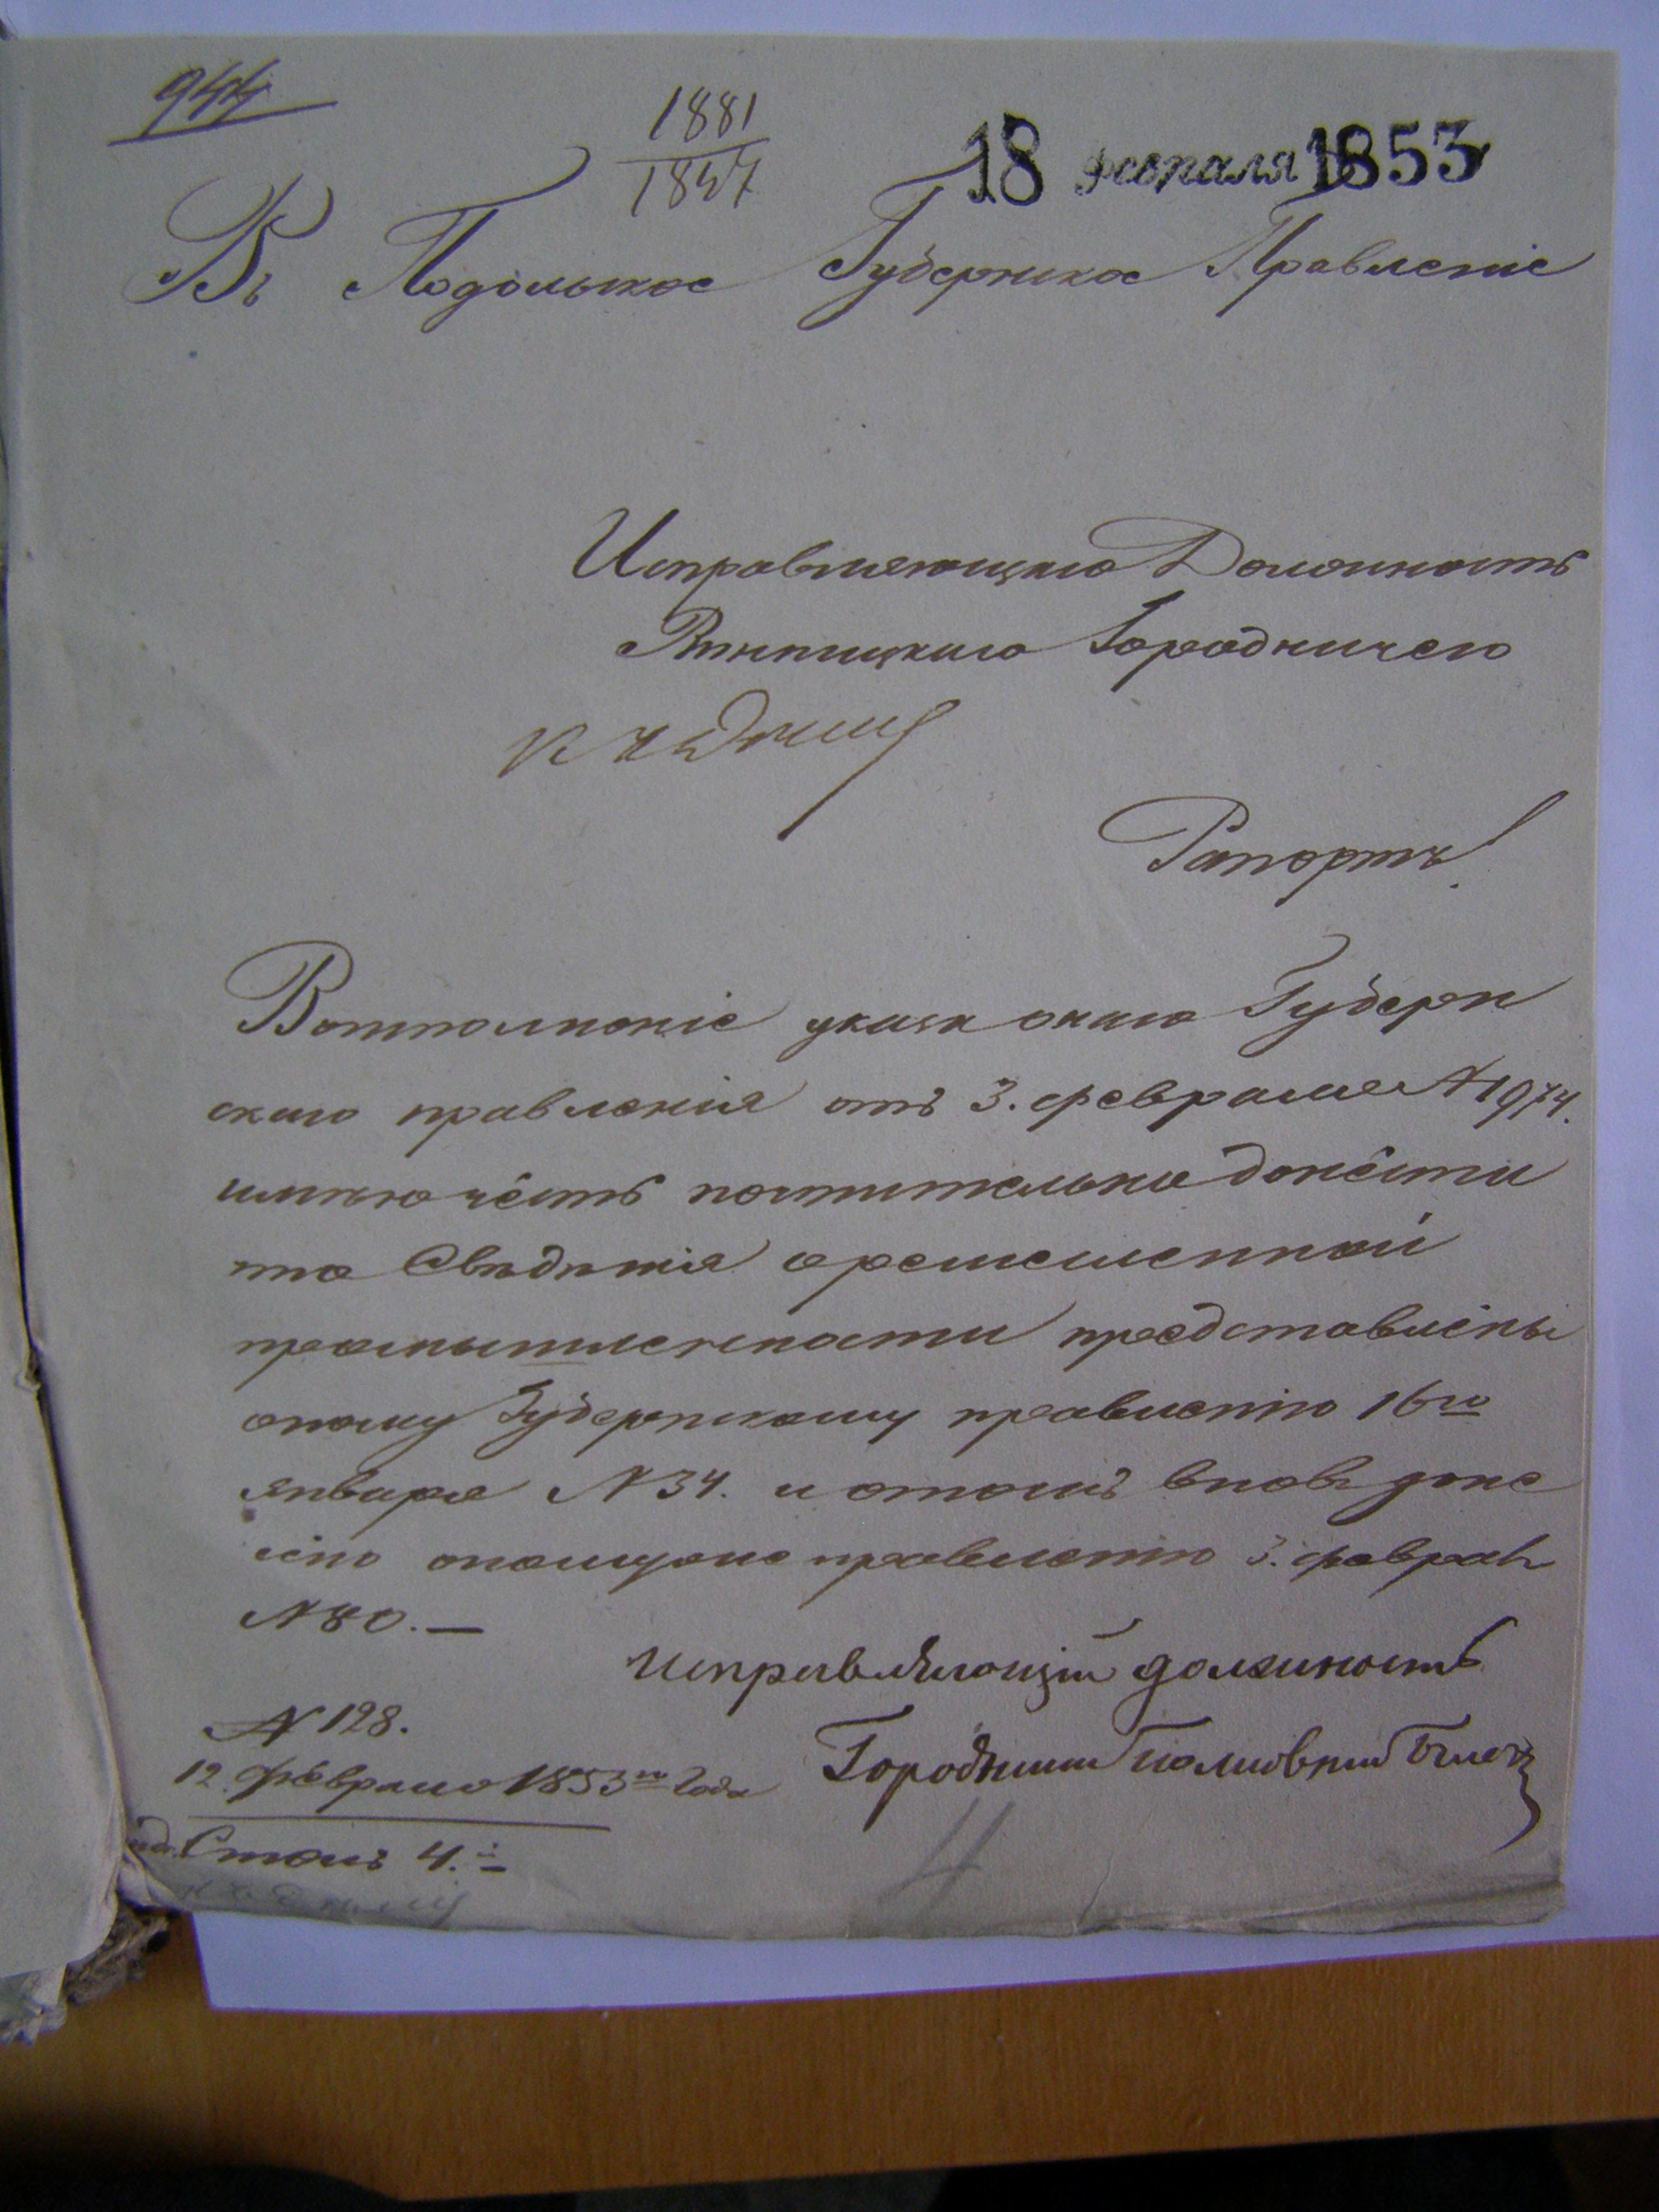 944
1881
1847
18 Февраля 1853
Въ Подольское Губернское Правленіе
Исправляющаго Должность
Винницкаго Городничего
К ЧѣДѣлу
Рапортъ!
Вотполненіе указа онаго Губерн
скаго правленія отъ 3. февраля N 1974.
имѣю чѐсть почтительно донѐсти
что Свѣдѣнія оремесленной
промышлености представлѐны
оному Губернскому правленію 16го
января N 34. и отомъ вновь доне
сѐно ономуже правленію 3. феврал
N 80. —
Исправляющій должность
Городничаго
N 128.
12. Февраля 1853го Года
Столъ 4. –
4